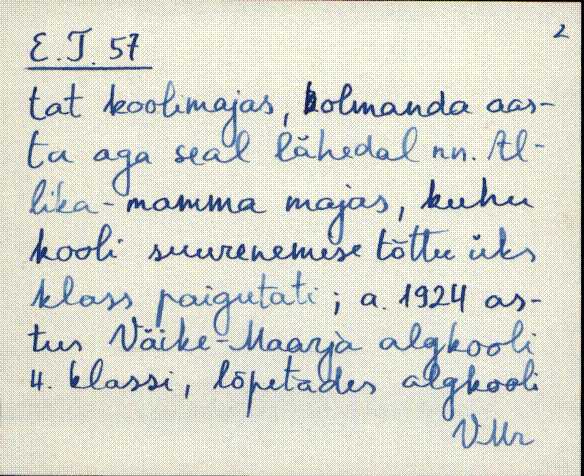 2
E. T. 57
tat koolimajas, kolmanda aas-
ta aga seal lähedal nn. Al-
lika-mamma majas, kuhu
kooli suurenemise tõttu üks
klass paigutati; a. 1924 as-
tus Väike-Maarja algkooli
4. klassi, lõpetades algkooli
VMr